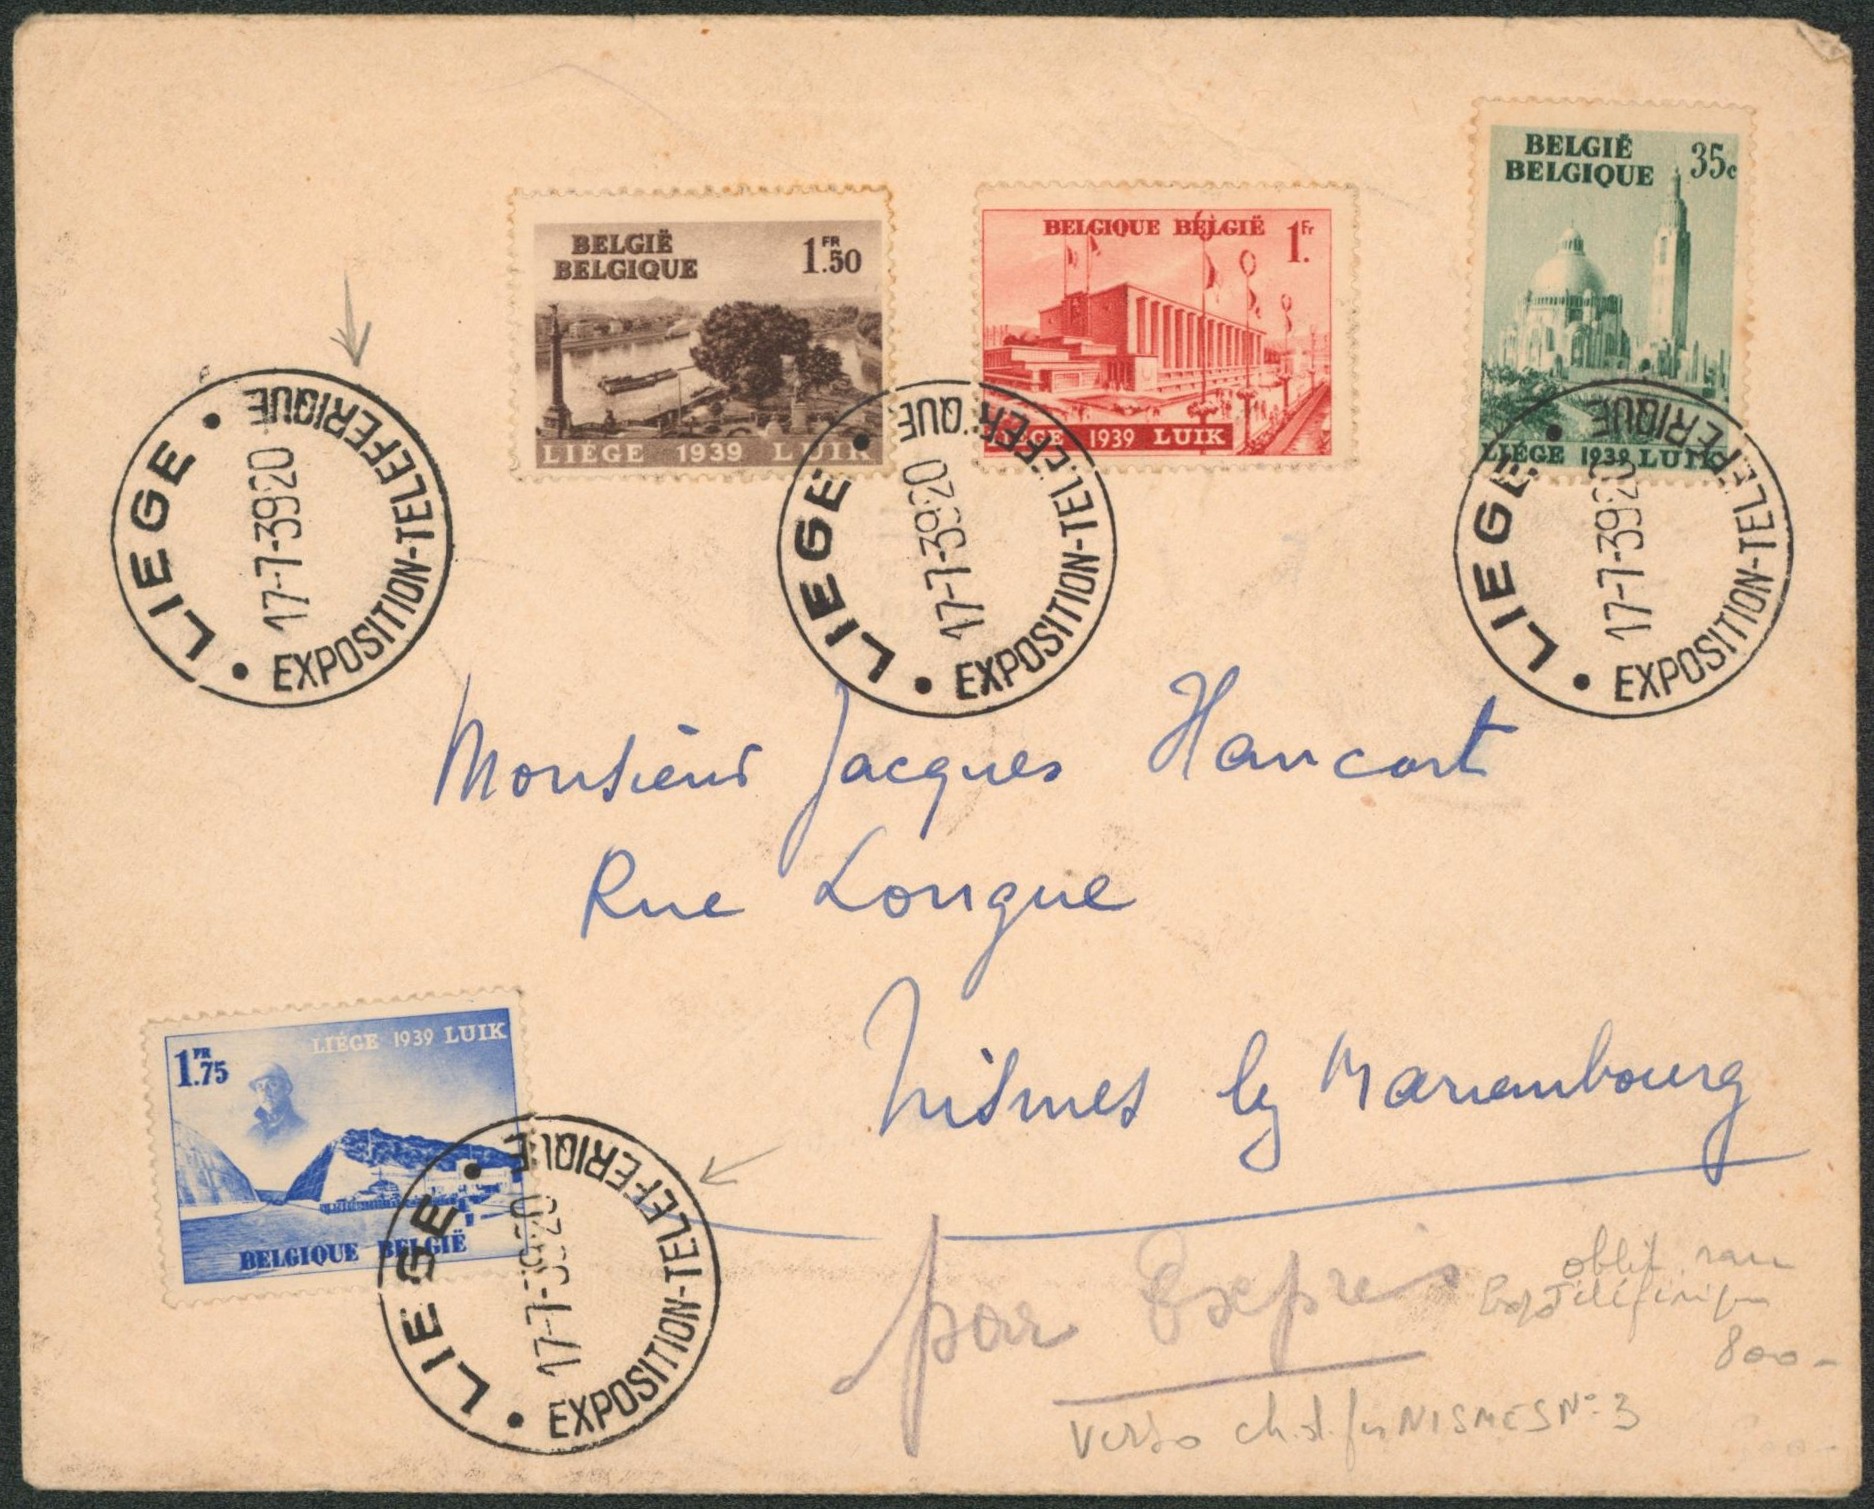 BELGIË
BELGIQUE
35c
LIÉGE 1939 LUIK
BELGIQUE BELGIË 1Fr.
LIÉGE 1939 LUIK
BELGIË
BELGIQUE
1FR.50
LIÉGE 1939 LUIK
• LIEGE • EXPOSITION-TELEFERIQUE
17-7-39 20
• LIEGE • EXPOSITION-TELEFERIQUE
17-7-39 20
• LIEGE • EXPOSITION-TELEFERIQUE
17-7-39 20
Monsieur Jacques Hancart
Rue Longue
Nismes lez Mariembourg
LIÉGE 1939 LUIK
1FR.75
BELGIQUE BELGIË
• LIEGE • EXPOSITION-TELEFERIQUE
17-7-39 20
par Exprès
oblit. rare
Expo Téléférique
800-
Verso ch. d. fer NISMES N° 3